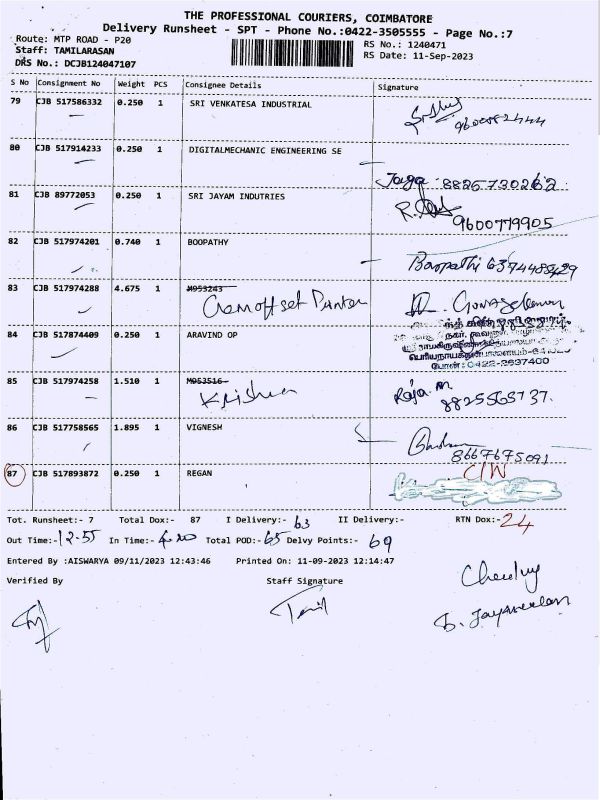 THE PROFESSIONAL COURIERS, COIMBATORE
Delivery Runsheet - SPT - Phone No.:0422-3505555 - Page No.:7
Route: MTP ROAD - P20
Staff: TAMILARASAN
DRS No.: DCJB124047107
RS No.: 1240471
RS Date: 11-Sep-2023
S No Consignment No Weight PCS Consignee Details Signature
79 CJB 517586332 0.250 1 SRI VENKATESA INDUSTRIAL
80 CJB 517914233 0.250 1 DIGITALMECHANIC ENGINEERING SE
Jaga 8825730262
81 CJB 89772053 0.250 1 SRI JAYAM INDUTRIES
9600779905
82 CJB 517974201 0.740 1 BOOPATHY
Boopathi 6374488429
83 CJB 517974288 4.675 1 M953243
Gem offset Printer
84 CJB 517874409 0.250 1 ARAVIND OP
போன்: 0422-2637400
85 CJB 517974258 1.510 1 M953516
Krishna
Raja m
8825565737.
86 CJB 517758565 1.895 1 VIGNESH
8667675091
87 CJB 517893872 0.250 1 REGAN
C/W
Tot. Runsheet:- 7 Total Dox:- 87 I Delivery:- 63 II Delivery:- RTN Dox:- 24
Out Time:- 12.55 In Time:- 6.20 Total POD:- 65 Delvy Points:- 69
Entered By :AISWARYA 09/11/2023 12:43:46 Printed On: 11-09-2023 12:14:47
Verified By Staff Signature
Tamil